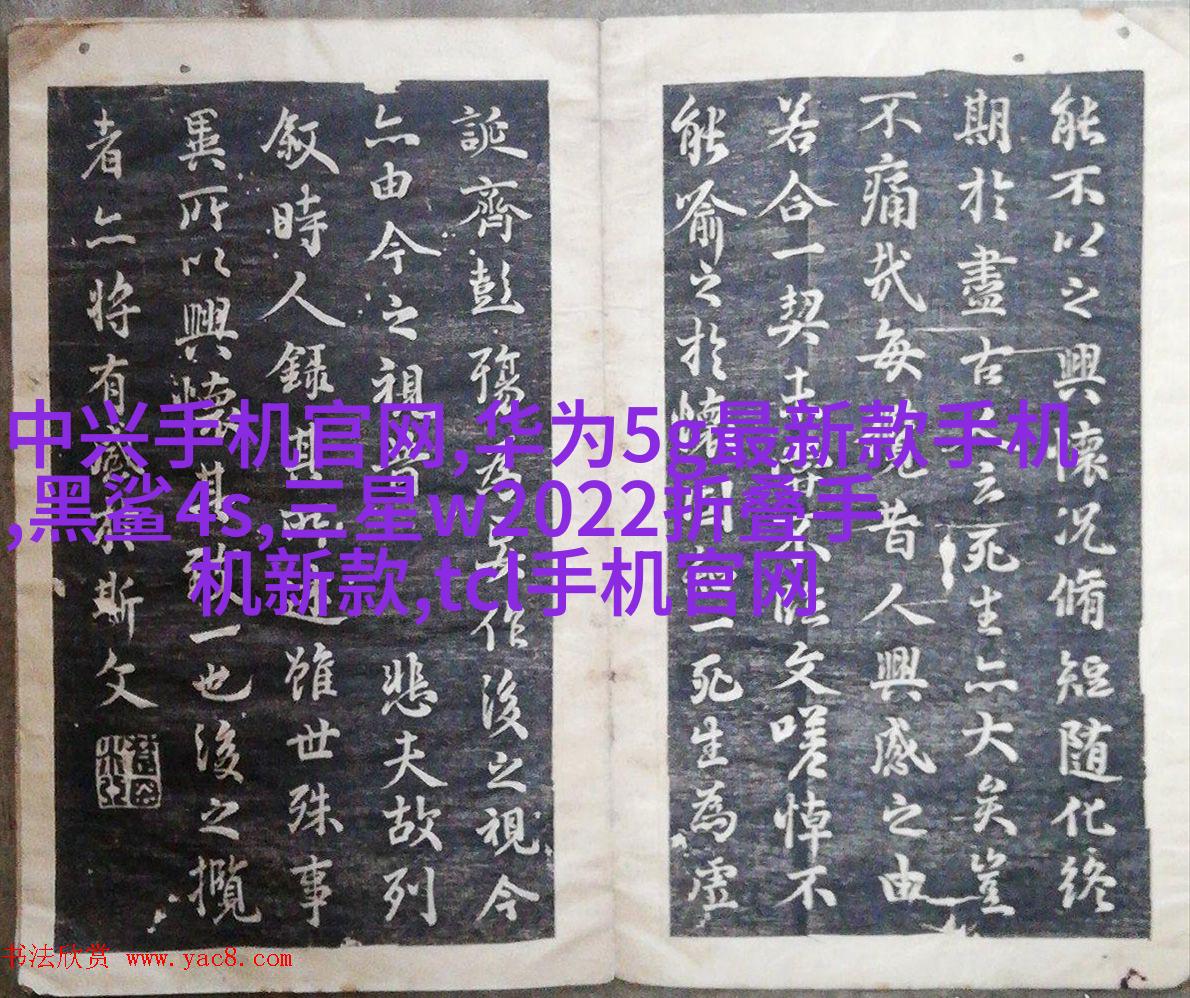 能不以之興懷況脩短随化終
期於盡古云死生亦大矣豈
不痛哉每昔人興感之由
若合一契文嗟悼不
能喻之於懷一死生為虛
誕齊彭殤為作後之視今
亦由今之視昔悲夫故列
叙時人錄其述雖世殊事
異所以興懷其致一也後之攬
者亦将有感於斯文
中兴手机官网,华为5g最新款手机
,黑鲨4s,三星w2022折叠手
机新款,tcl手机官网
书法欣赏 www.yac8.com